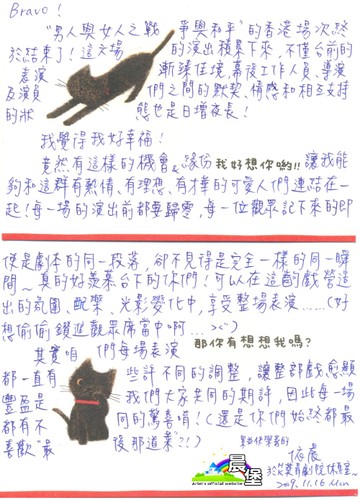 Bravo!
"男人與女人之戰爭與和平"的香港場次終
於結束了!這六場的演出積累下來,不僅台前的
表演漸臻佳境,幕後工作人員、導演
及演員們之間的默契、情感和相互支持
的狀態也是日增夜長!
我覺得我好幸福!
竟然有這樣的機會&緣份 我好想你喲!! 讓我能
夠和這群有熱情、有理想、有才華的可愛人們連結在一
起!每一場的演出前都要歸零,每一位觀眾記下來的即
使是劇本的同一段落,卻不見得是完全一樣的同一瞬
間~真的好羨慕台下的你們!可以在這齣戲營造
出的氛圍、配樂、光影變化中,享受整場表演......(好
想偷偷鑽進觀眾席當中啊... ><) 那你有想想我嗎?
其實咱們每場表演
都一直有些許不同的調整,讓整部戲愈顯
豐盈是我們大家共同的期許,因此每一場
都有不同的驚喜唷!(還是你們始終都最
喜歡"最後那道菜"?!)
依晨
2009.11.16 Mon
晨堡
Ariel's official website